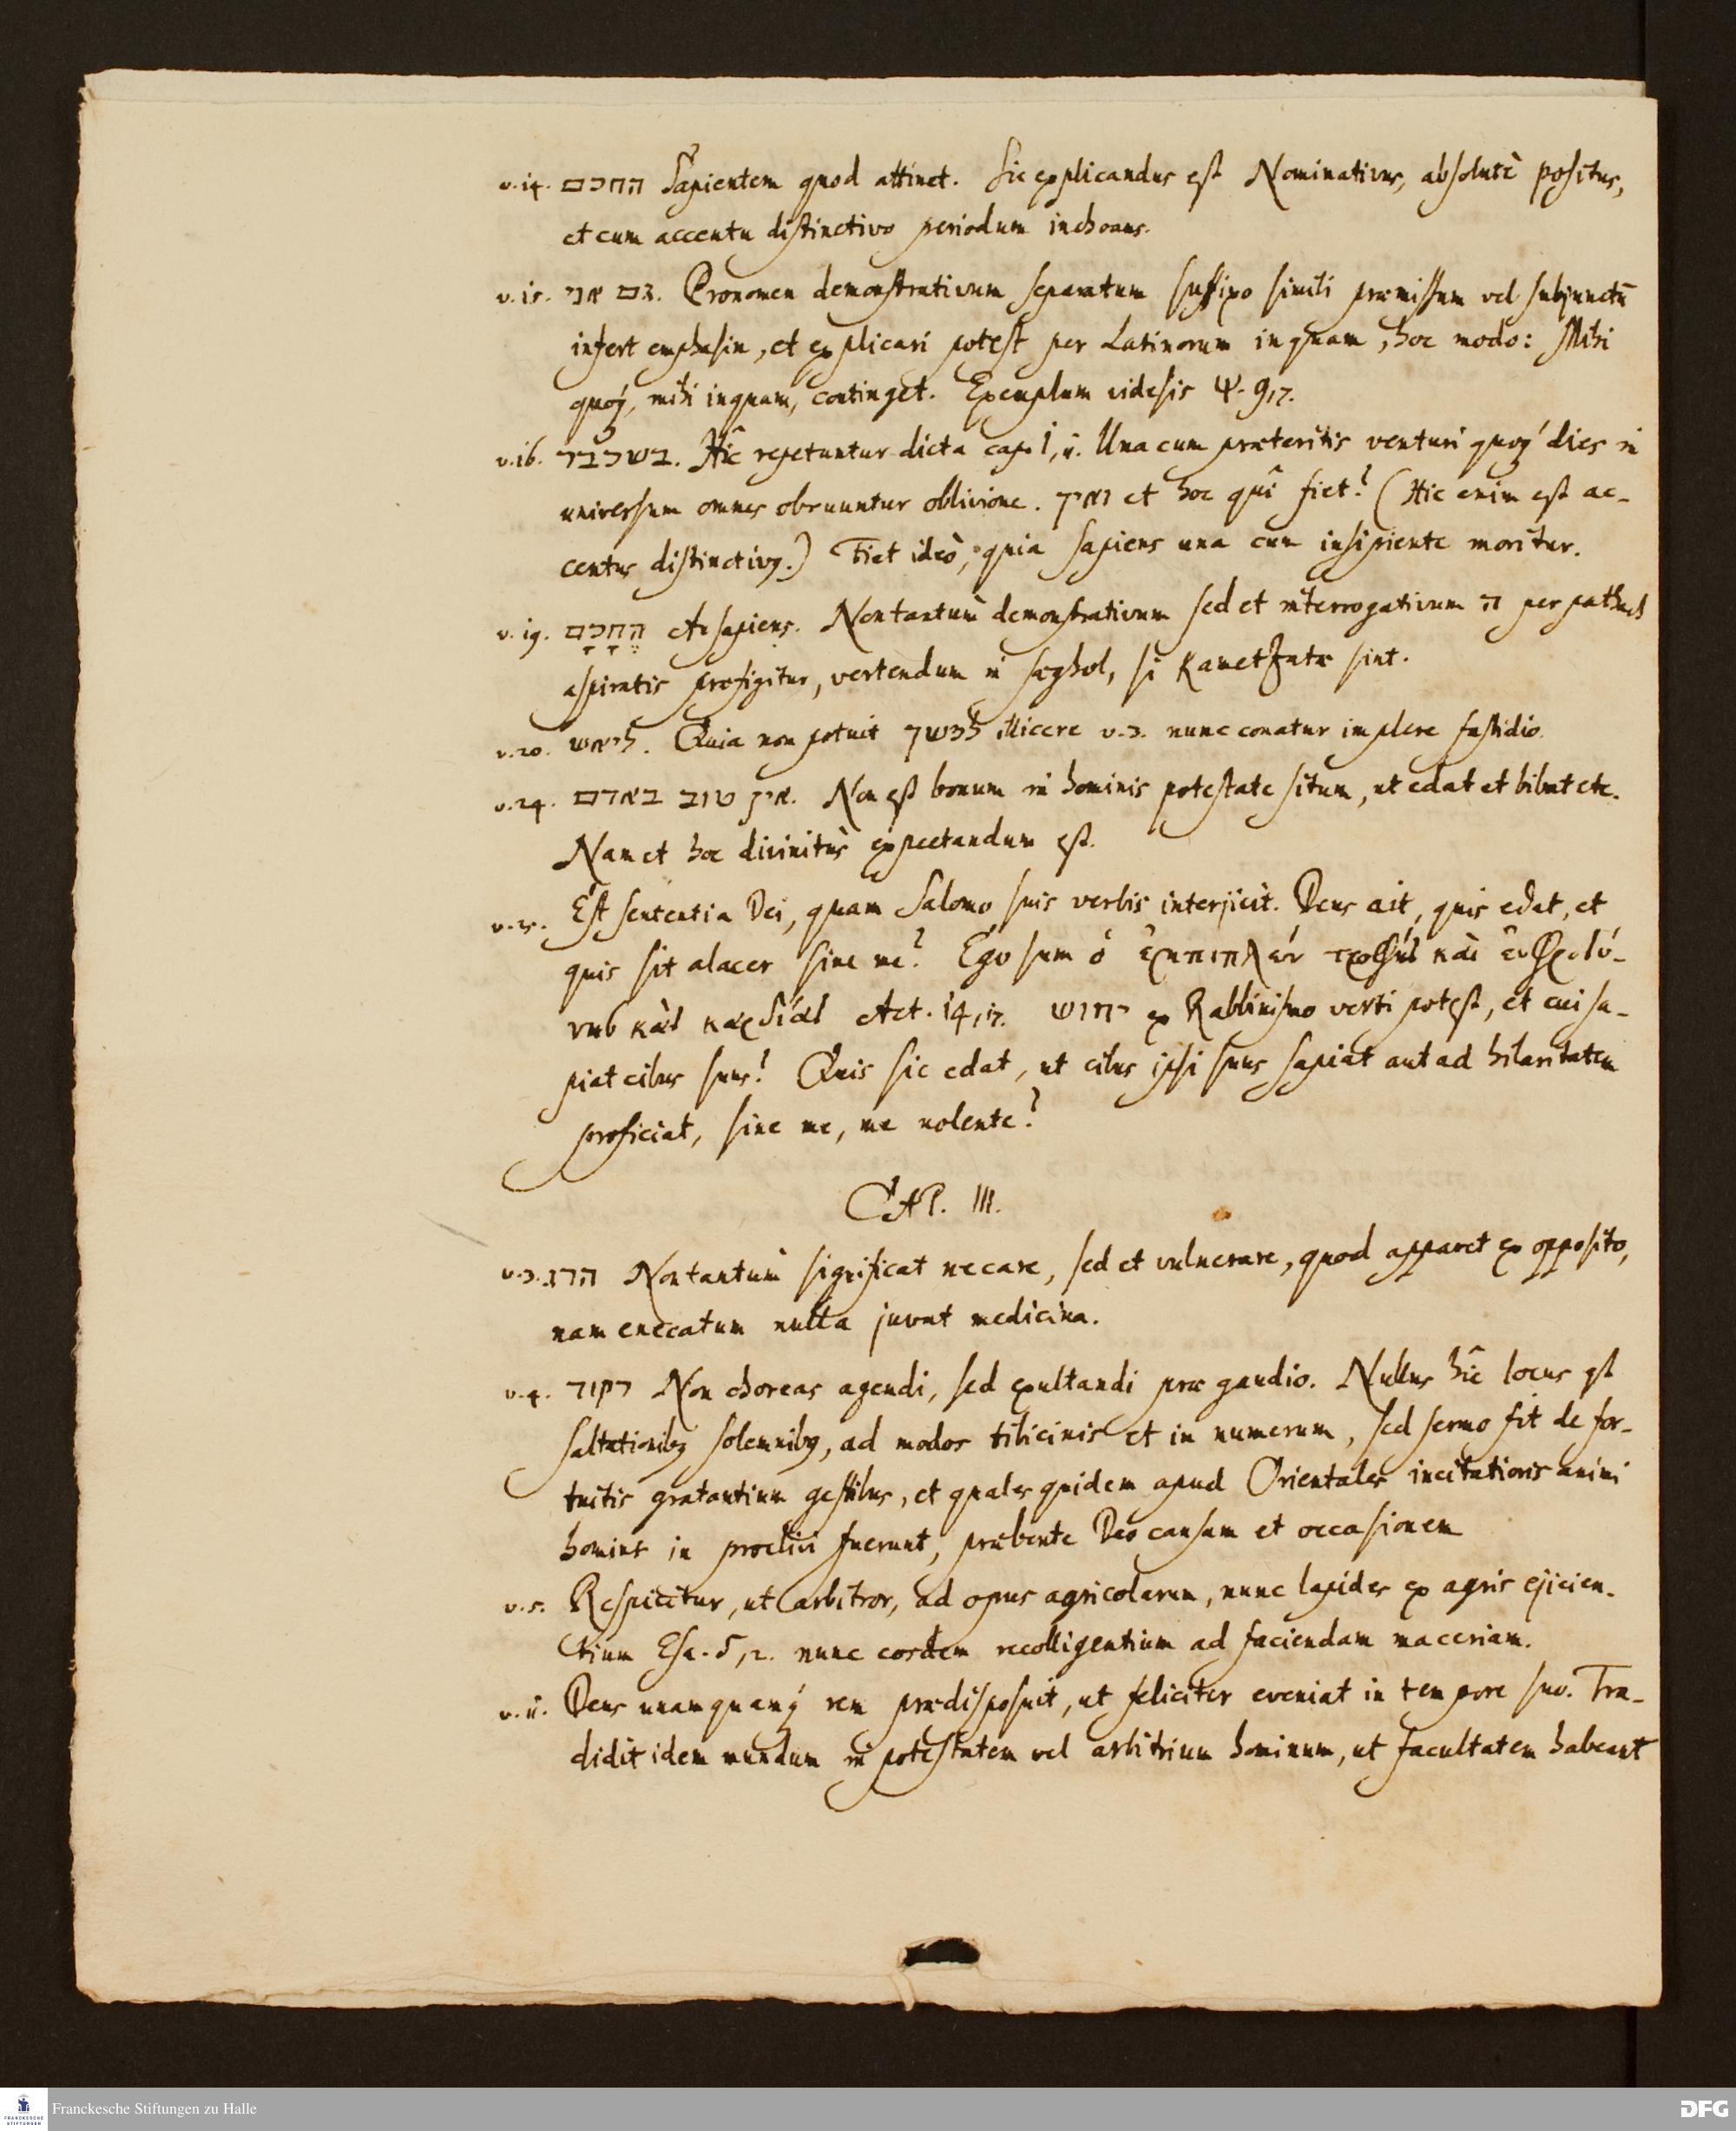 v. 14. החכם Sapientem quod attinet. Sic explicandus est Nominativus, absolutè positus,
et cum accentu distinctivo periodum inchoans.
v. 15. גם אני. Pronomen demonstrativum separatum suffixo simili præmissum vel subjunctū
infert emphasin, et explicari potest per Latinorum inquam, hoc modo: Mihi
quoq́, mihi inquam, continget. Exemplum videsis Ψ. 9,7.
v. 16. בשכבר. Hîc repetuntur dicta cap. 1, 11. Una cum præteritis venturi quoq́ dies in
universum omnes obruuntur oblivione. ואיך et hoc quî fiet? (Hic enim est ac-
centus distinctivq.) Fiet ideò, quia sapiens una cum insipiente moritur.
v. 19. הֶחָכָם An sapiens. Non tantùm demonstrativum sed et interrogativum ה per pathach
aspiratis præfigitur, vertendum in sæghol, si Kametzatæ sint.
v. 20. ליאש. Quia non potuit למשוך illicere v. 3. nunc conatur implere fastidio.
v. 24. אין טוב באדם. Non est bonum in hominis potestate situm, ut edat et bibat etc.
Nam et hoc divinitùs expectandum est.
v. 25. Est sententia Dei, quam Salomo suis verbis interjicit. Deus ait, quis edat, et
quis sit alacer sine me? Ego sum ὁ ἐμπιπλῶν τροφῆς καὶ εὐφροσύ-
νης τὰς καρδίας Act. 14, 17. יחוש ex Rabbinismo verti potest, et cui sa-
piat cibus suus? Quis sic edat, ut cibus ipsi suus sapiat aut ad hilaritatem
proficiat, sine me, me nolente?
CAP. III.
v. 3. הרג Non tantùm significat necare, sed et vulnerare, quod apparet ex opposito,
nam enecatum nulla juvat medicina.
v. 4. רקוד Non choreas agendi, sed exultandi præ gaudio. Nullus hîc locus est
saltationibq solemnibq, ad modos tibicinis et in numerum, sed sermo fit de for-
tuitis gratantium gestibus, et quales quidem apud Orientales incitatioris animi
homines in proclivi fuerunt, præbente Deo causam et occasionem
v. 5. Respicitur, ut arbitror, ad opus agricolarum, nunc lapides ex agris ejicien-
tium Esa. 5, 2. nunc eosdem recolligentium ad faciendam maceriam.
v. 11. Deus unamquamq́ rem prædisposuit, ut feliciter eveniat in tempore suo. Tra-
didit idem mundum in potestatem vel arbitrium hominum, ut facultatem habeant
Franckesche Stiftungen zu Halle
DFG